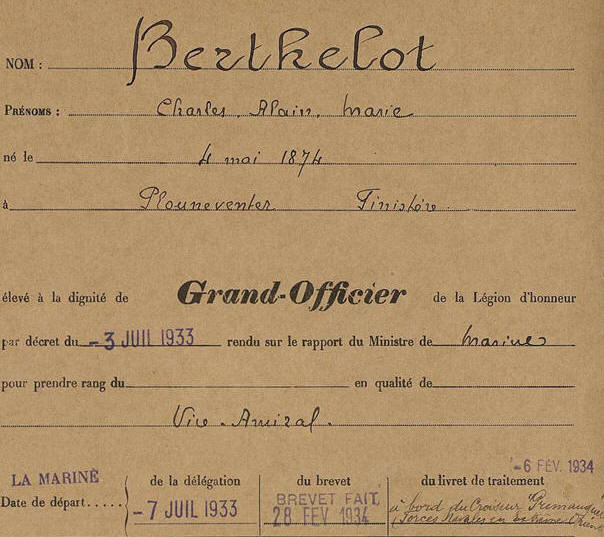 NOM : Berthelot
PRÉNOMS : Charles, Alain, Marie
né le 4 mai 1874
à Plouneventer Finistère.
élevé à la dignité de Grand-Officier de la Légion d'honneur
par décret du -3 JUIL 1933 rendu sur le rapport du Ministre de Marine
pour prendre rang du en qualité de
Vice-Amiral.
-6 FEV. 1934
LA MARINE de la délégation du brevet du livret de traitement
Date de départ..... -7 JUIL 1933 BREVET FAIT. à bord du Croiseur "Primauguet"
28 FEV 1934 (Forces Navales en Extrême Orient